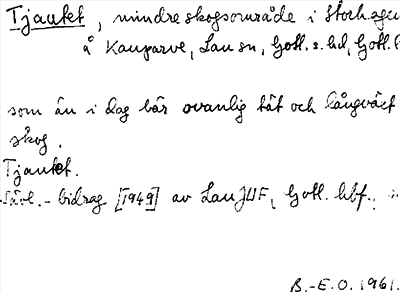 Tjautet, mindre skogsområde i Storhagen
å Kauparve, Lau sn, Gotl. s. hd, Gotl. l
som än i dag bär ovanlig tät och långväxt
skog.
Tjautet.
bidrag [1949] av Lau JUF, Gotl. hbf.
B.-E.O. 1961.